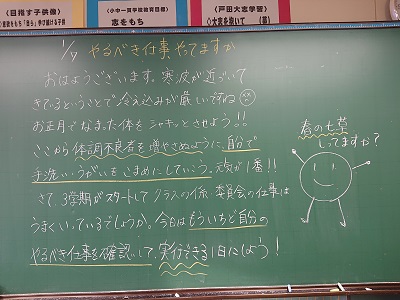 《目指す子供像》
志をもち「自ら」学び続ける子供
《小中一貫学校教育目標》
志をもち
《戸田大志学習》
◇大志を抱いて
1/9 やるべき仕事、やってますか
おはようございます。寒波が近づいて
きているということで冷え込みが厳しいですね
お正月でなまった体をシャキッとさせよう!!
ここから体調不良者を増やさぬように、自分で
手洗い、うがいをこまめにしていこう。元気が1番!!
さて、3学期がスタートしてクラスの係、委員会の仕事は
うまくいっているでしょうか。今日はもういちど自分の
やるべき仕事を確認して、実行できる1日にしよう!
春の七草
しってますか?